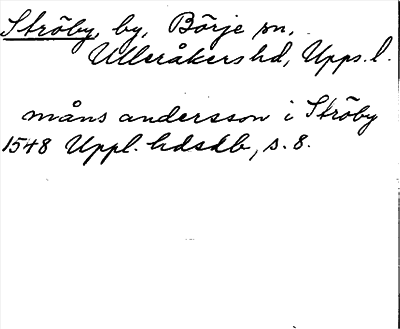 Ströby, by, Börje sn,
Ulleråkers hd, Upps. l.
måns andersson i Ströby
1548 Uppl. hdsdb, s. 8.